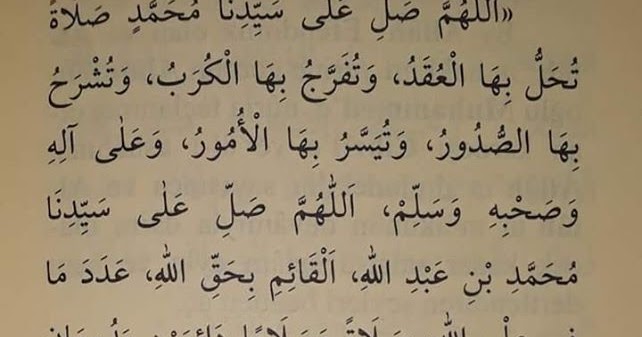 «اَللّٰهُمَّ صَلِّ عَلَى سَيِّدِنَا مُحَمَّدٍ صَلَاةً
تُحَلُّ بِهَا الْعُقَدُ، وَتُفَرَّجُ بِهَا الْكُرَبُ، وَتُشْرَحُ
بِهَا الصُّدُورُ، وَتُيَسَّرُ بِهَا الْأُمُورُ، وَعَلٰى آلِهِ
وَصَحْبِهِ وَسَلِّمْ، اَللّٰهُمَّ صَلِّ عَلَى سَيِّدِنَا
مُحَمَّدِ بْنِ عَبْدِ اللهِ، اَلْقَائِمِ بِحَقِّ اللهِ، عَدَدَ مَا